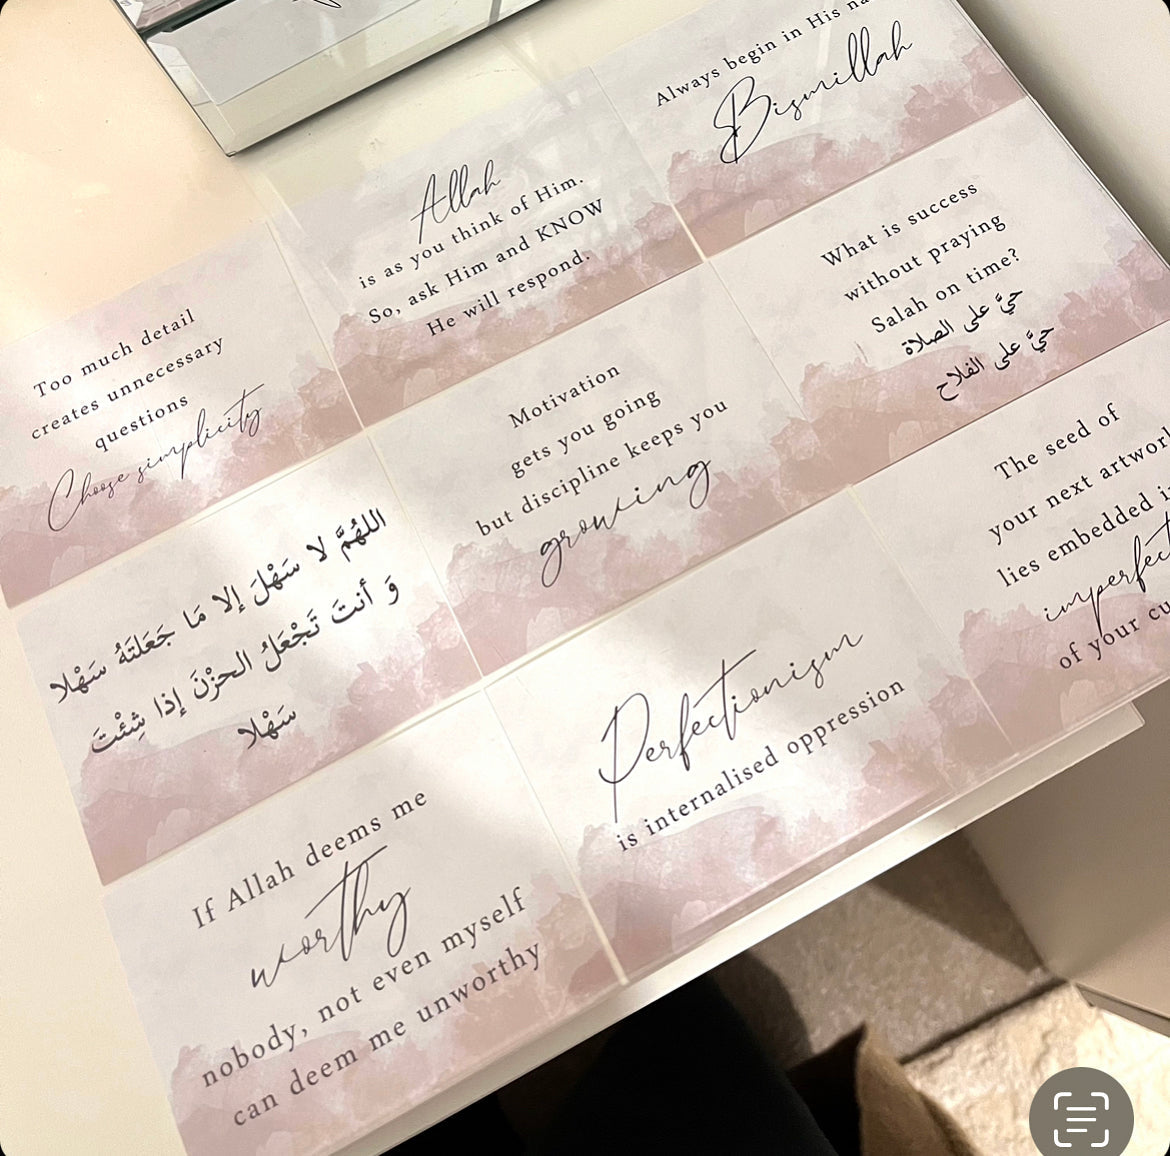 Always begin in His
Bismillah
Allah
is as you think of Him.
So, ask Him and KNOW
He will respond.
Too much detail
creates unnecessary
questions
Choose simplicity
What is success
without praying
Salah on time?
حيَّ على الصلاة
حيَّ على الفلاح
Motivation
gets you going
but discipline keeps you
growing
اللهُمَّ لا سَهْلَ إلا مَا جَعَلتَهُ سَهْلا
وَ أنتَ تَجْعَلُ الحزْنَ إذا شِئْتَ
سَهْلا
The seed of
your next
lies embedded
of your
Perfectionism
is internalised oppression
If Allah deems me
worthy
nobody, not even myself
can deem me unworthy